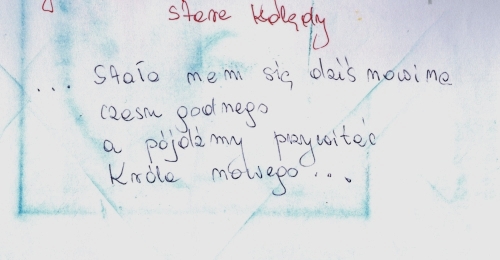 stare kolędy
... Stała nam się dziś nowina
czasu godnego
a pójdźmy przywitać
Króla nowego ...